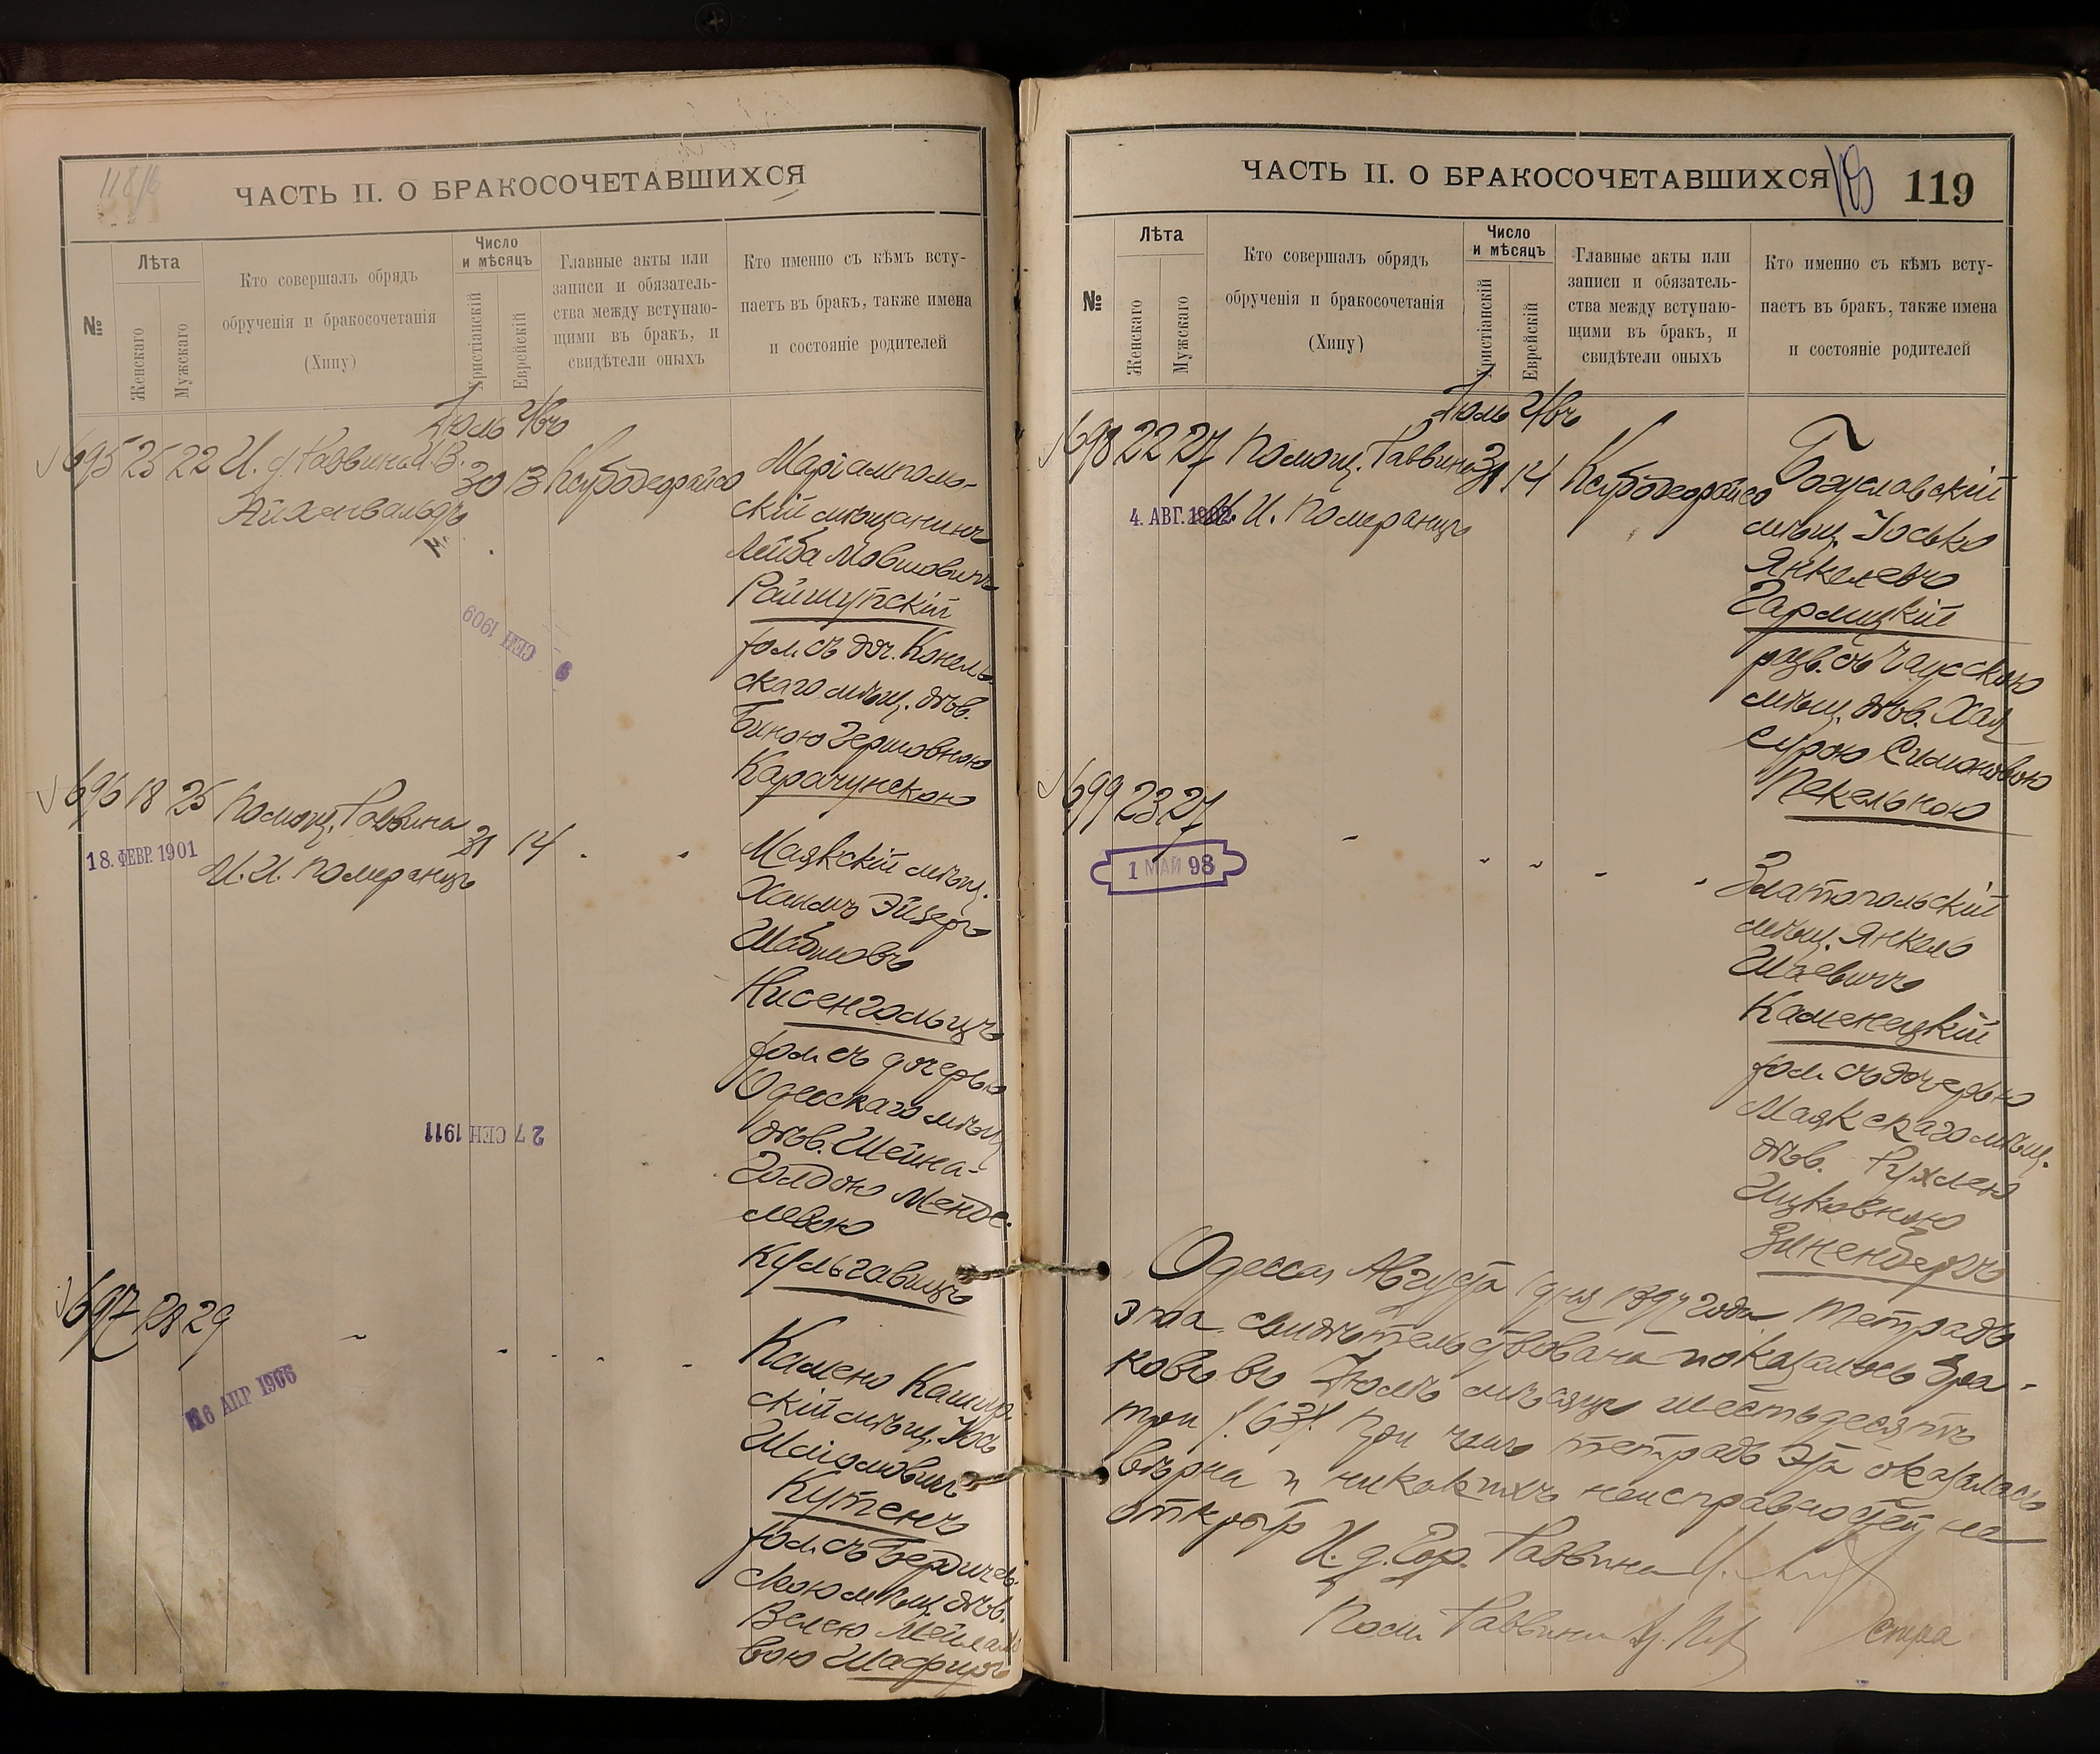 118/6
ЧАСТЬ II. О БРАКОСОЧЕТАВШИХСЯ
№
Лѣта
Женскаго
Мужскаго
Кто совершалъ обрядъ
обрученія и бракосочетанія
(Хипу)
Число
и мѣсяцъ
Христіанскій
Еврейскій
Главные акты или
записи и обязатель-
ства между вступаю-
щими въ бракъ, и
свидѣтели оныхъ
Кто именно съ кѣмъ всту-
паетъ въ бракъ, также имена
и состояніе родителей
Іюль Овъ
695 25 22 И. д. Раввина
Айхенвальдъ
30 13
Маріамполь-
скій мѣщанинъ
Лейба Мовшовичъ
Раишупскій
хол. съ доч. Конель-
скаго мѣщ. дѣв.
Биною Гершовною
Карачунскою
СЕН 1909
696 18 25 Помощ. Раввина
И. И. Померанцъ
31 14
18. ФЕВР. 1901
Маякскій мѣщ.
Хаимъ Эйзеръ
Нисенгольцъ
хол. съ дочерью
Одесскаго мѣщ.
дѣв. Шейна-
Голдою Менде-
левою
Кульгавицъ
27 СЕН 1911
697 28 29
16 АПР 1906
Камень Кашир-
скій мѣщ. Іось
Шліомовичъ
Кутенъ
хол. съ Бердичев-
скою мѣщ. дѣв.
Велею
вою Шафиръ
ЧАСТЬ II. О БРАКОСОЧЕТАВШИХСЯ
119
№
Лѣта
Женскаго
Мужскаго
Кто совершалъ обрядъ
обрученія и бракосочетанія
(Хипу)
Число
и мѣсяцъ
Христіанскій
Еврейскій
Главные акты или
записи и обязатель-
ства между вступаю-
щими въ бракъ, и
свидѣтели оныхъ
Кто именно съ кѣмъ всту-
паетъ въ бракъ, также имена
и состояніе родителей
Іюль Овъ
698 22 27 Помощ. Раввина
И. И. Померанцъ
31 14
4. АВГ. 1902
Богуславскій
мѣщ. Іосько
Янкелевъ
Гармицкій
разв. съ Чаусскою
мѣщ. дѣв. Хая
Сурою Симоновою
Пекельною
699 23 27
1 МАЙ 98
Златопольскій
мѣщ. Янкель
Шаевичъ
Каменецкій
хол. съ дочерью
Маякскаго мѣщ.
дѣв. Рухлею
Ицковною
Зиненбергъ
Одесса, Августа 1 дня 1897 года Тетрадь
эта свидѣтельствована показалось бра-
ковъ въ Іюлѣ мѣсяцѣ шестьдесятъ
три /63/ При чемъ тетрадь эта оказалась
вѣрна и никакихъ неисправностей не
открыто
И. д. Гор. Раввина
Пом. Раввина